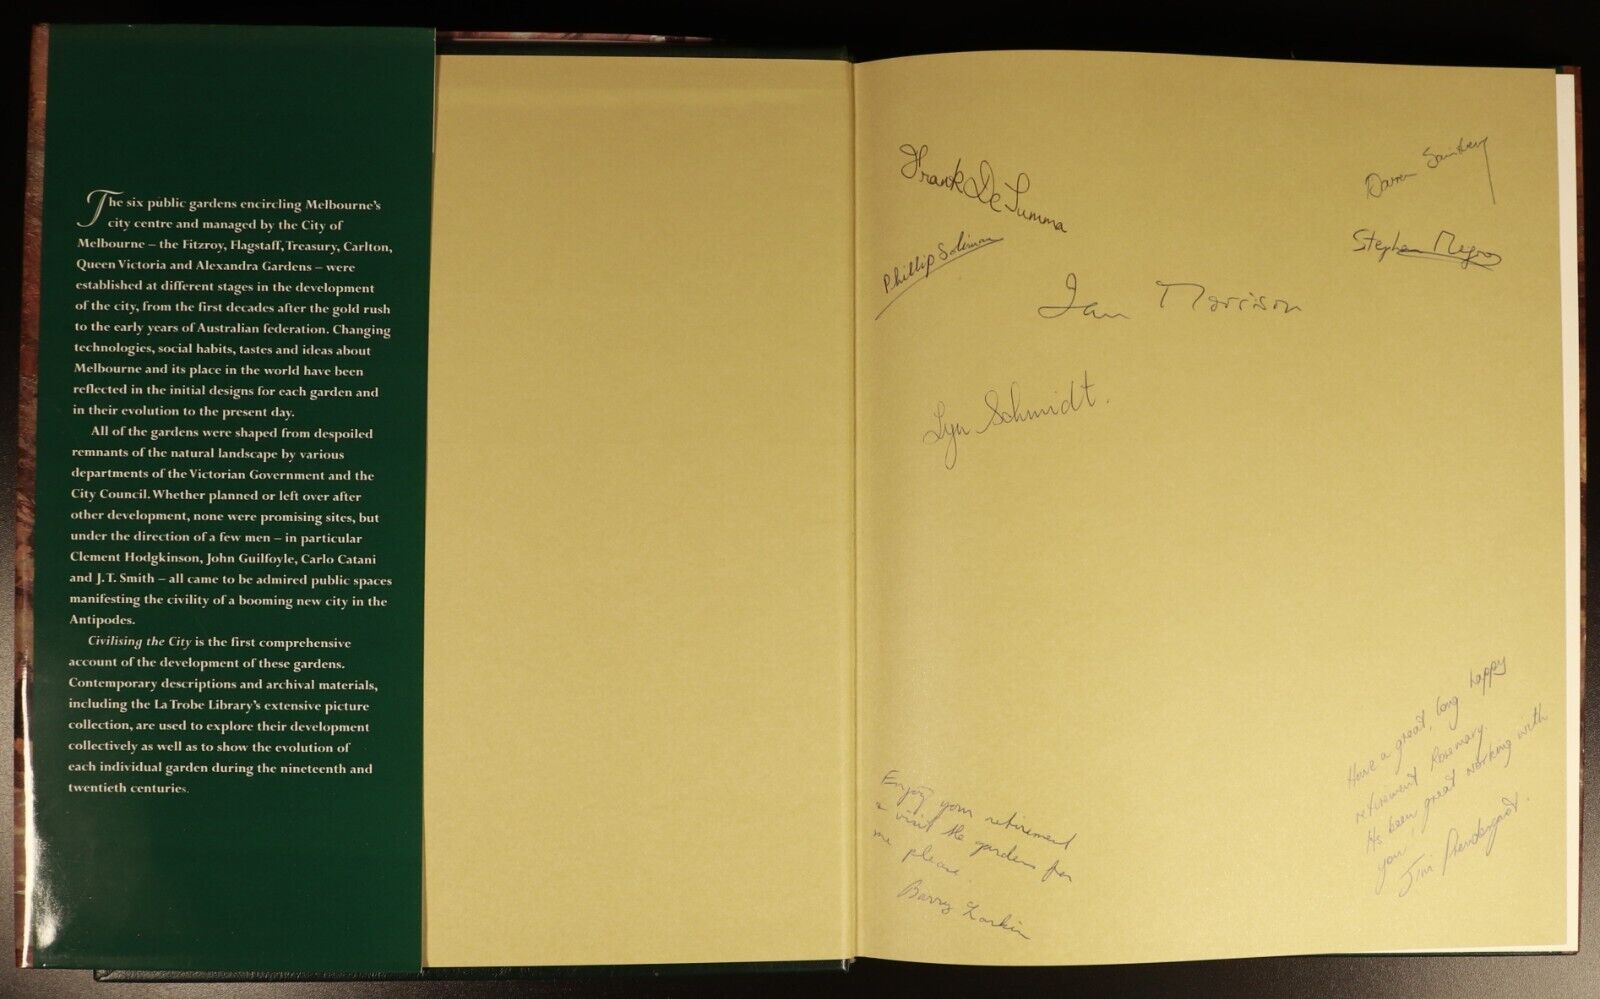 The six public gardens encircling Melbourne's
city centre and managed by the City of
Melbourne – the Fitzroy, Flagstaff, Treasury, Carlton,
Queen Victoria and Alexandra Gardens – were
established at different stages in the development
of the city, from the first decades after the gold rush
to the early years of Australian federation. Changing
technologies, social habits, tastes and ideas about
Melbourne and its place in the world have been
reflected in the initial designs for each garden and
in their evolution to the present day.
All of the gardens were shaped from despoiled
remnants of the natural landscape by various
departments of the Victorian Government and the
City Council. Whether planned or left over after
other development, none were promising sites, but
under the direction of a few men – in particular
Clement Hodgkinson, John Guilfoyle, Carlo Catani
and J.T. Smith – all came to be admired public spaces
manifesting the civility of a booming new city in the
Antipodes.
Civilising the City is the first comprehensive
account of the development of these gardens.
Contemporary descriptions and archival materials,
including the La Trobe Library's extensive picture
collection, are used to explore their development
collectively as well as to show the evolution of
each individual garden during the nineteenth and
twentieth centuries.
Frank De Summa
Phillip Soliman
Darren
Stephen
Ian Morrison
Lyn Schmidt.
Enjoy your retirement
& visit the gardens for
me please
Barry Larkin
Have a great, long happy
retirement Rosemary.
Its been great working with
you!
Jim Prendergast.